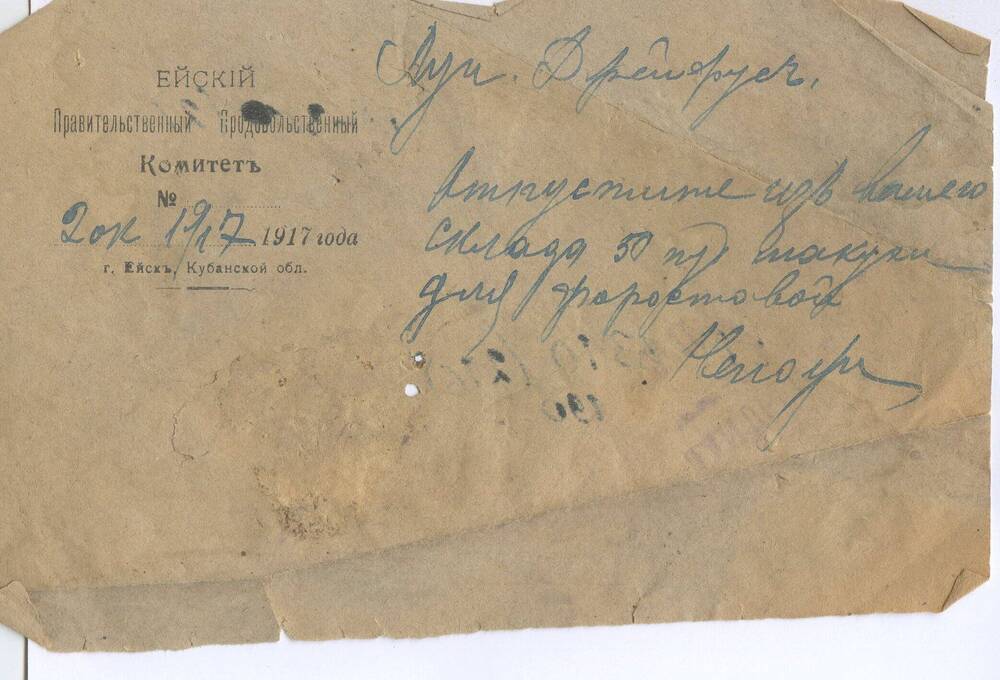 ЕЙСКІЙ
Правительственный Продовольственный
Комитетъ
№
2 ок 1917 1917 года
г. Ейскъ, Кубанской обл.
Луи. Дрейфусъ.
Отпустите изъ вашего
склада 50 пуд макухи
для Форостовой